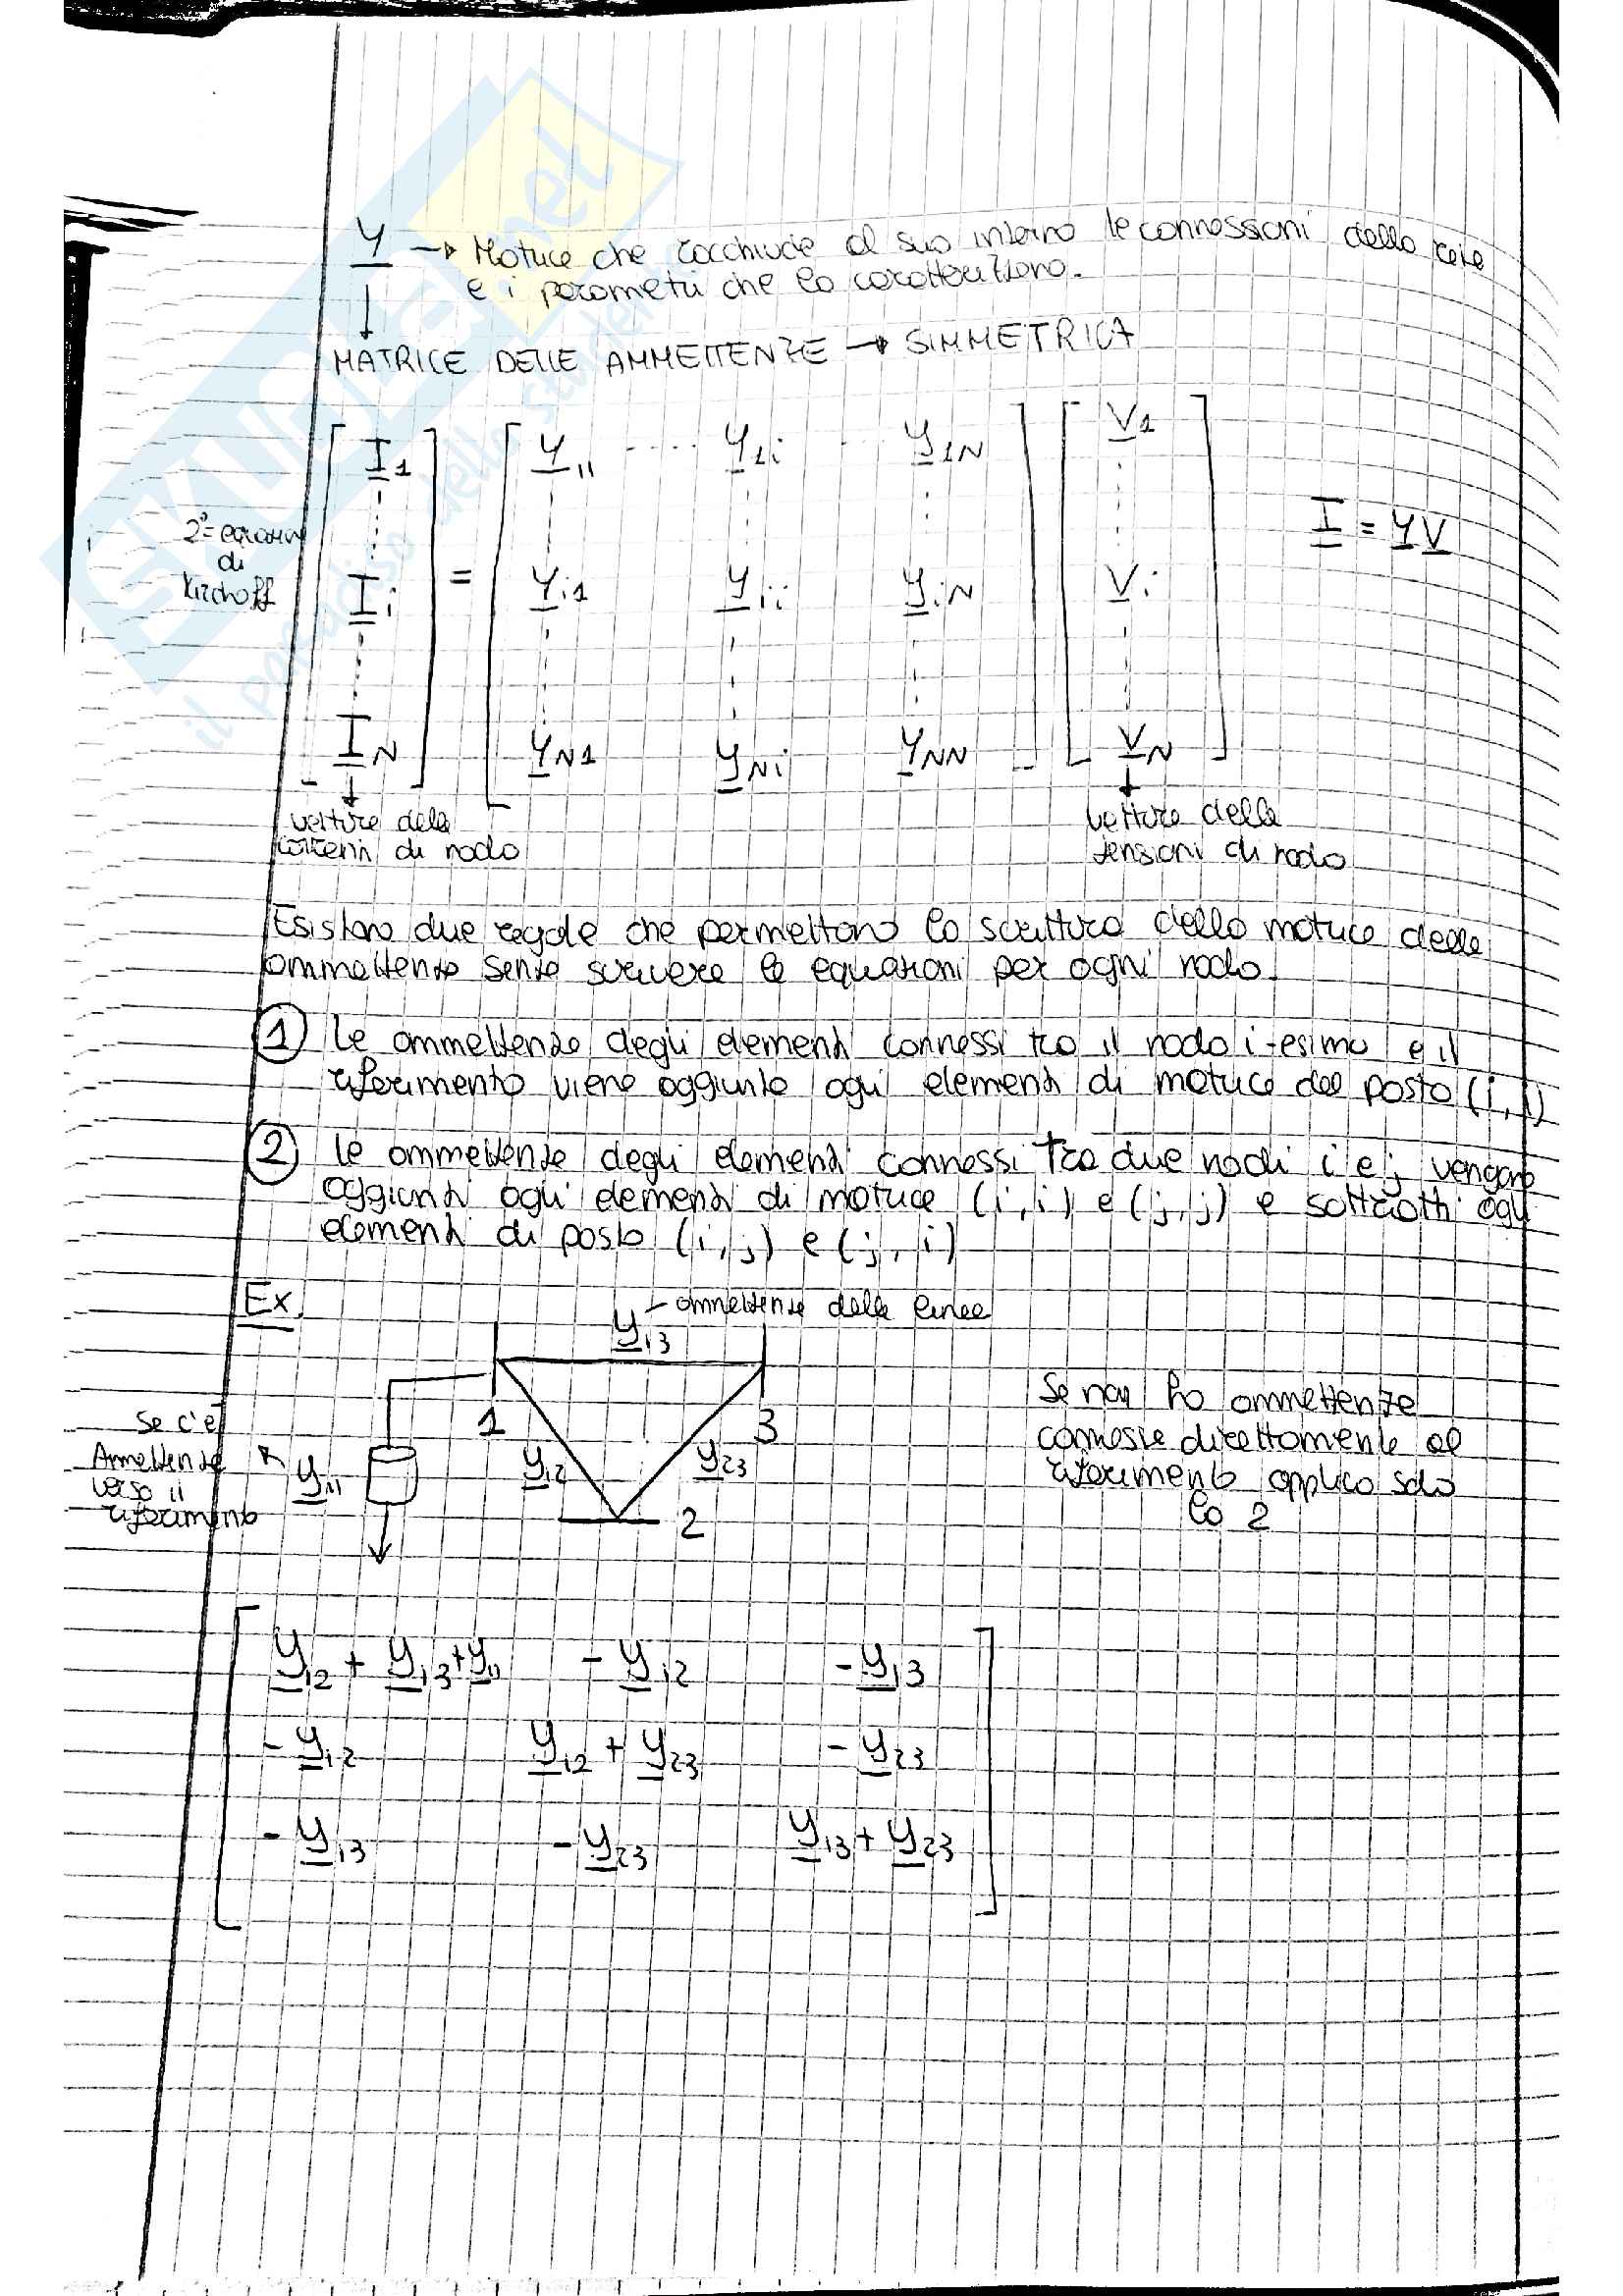 Y → Matrice che racchiude al suo interno le connessioni della rete
e i parametri che la caratterizzano.
MATRICE DELLE AMMETTENZE → SIMMETRICA
I1 Y11 ···· Y1i ·· Y1N V1
2ª equazione
di
Kirchoff
Ii = Yi1 Yii YiN Vi
I = Y V
IN YN1 YNi YNN VN
vettore delle
correnti di nodo
vettore delle
tensioni di nodo
Esistono due regole che permettono la scrittura della matrice delle
ammettenze senza scrivere le equazioni per ogni nodo.
1 Le ammettenze degli elementi connessi tra il nodo i-esimo e il
riferimento viene aggiunto agli elementi di matrice del posto (i, i)
2 Le ammettenze degli elementi connessi tra due nodi i e j vengano
aggiunti agli elementi di matrice (i, i) e (j, j) e sottratti agli
elementi di posto (i, j) e (j, i)
Ex.
Y13 – ammettenze delle linee
1
3
Y12
Y23
2
Se c'è
Ammettenza
verso il
riferimento
Y11
Se non ho ammettenze
connesse direttamente al
riferimento applico solo
la 2
Y12 + Y13 + Y11 - Y12 - Y13
- Y12 Y12 + Y23 - Y23
- Y13 - Y23 Y13 + Y23
SKUOLA.net
il paradiso dello studente